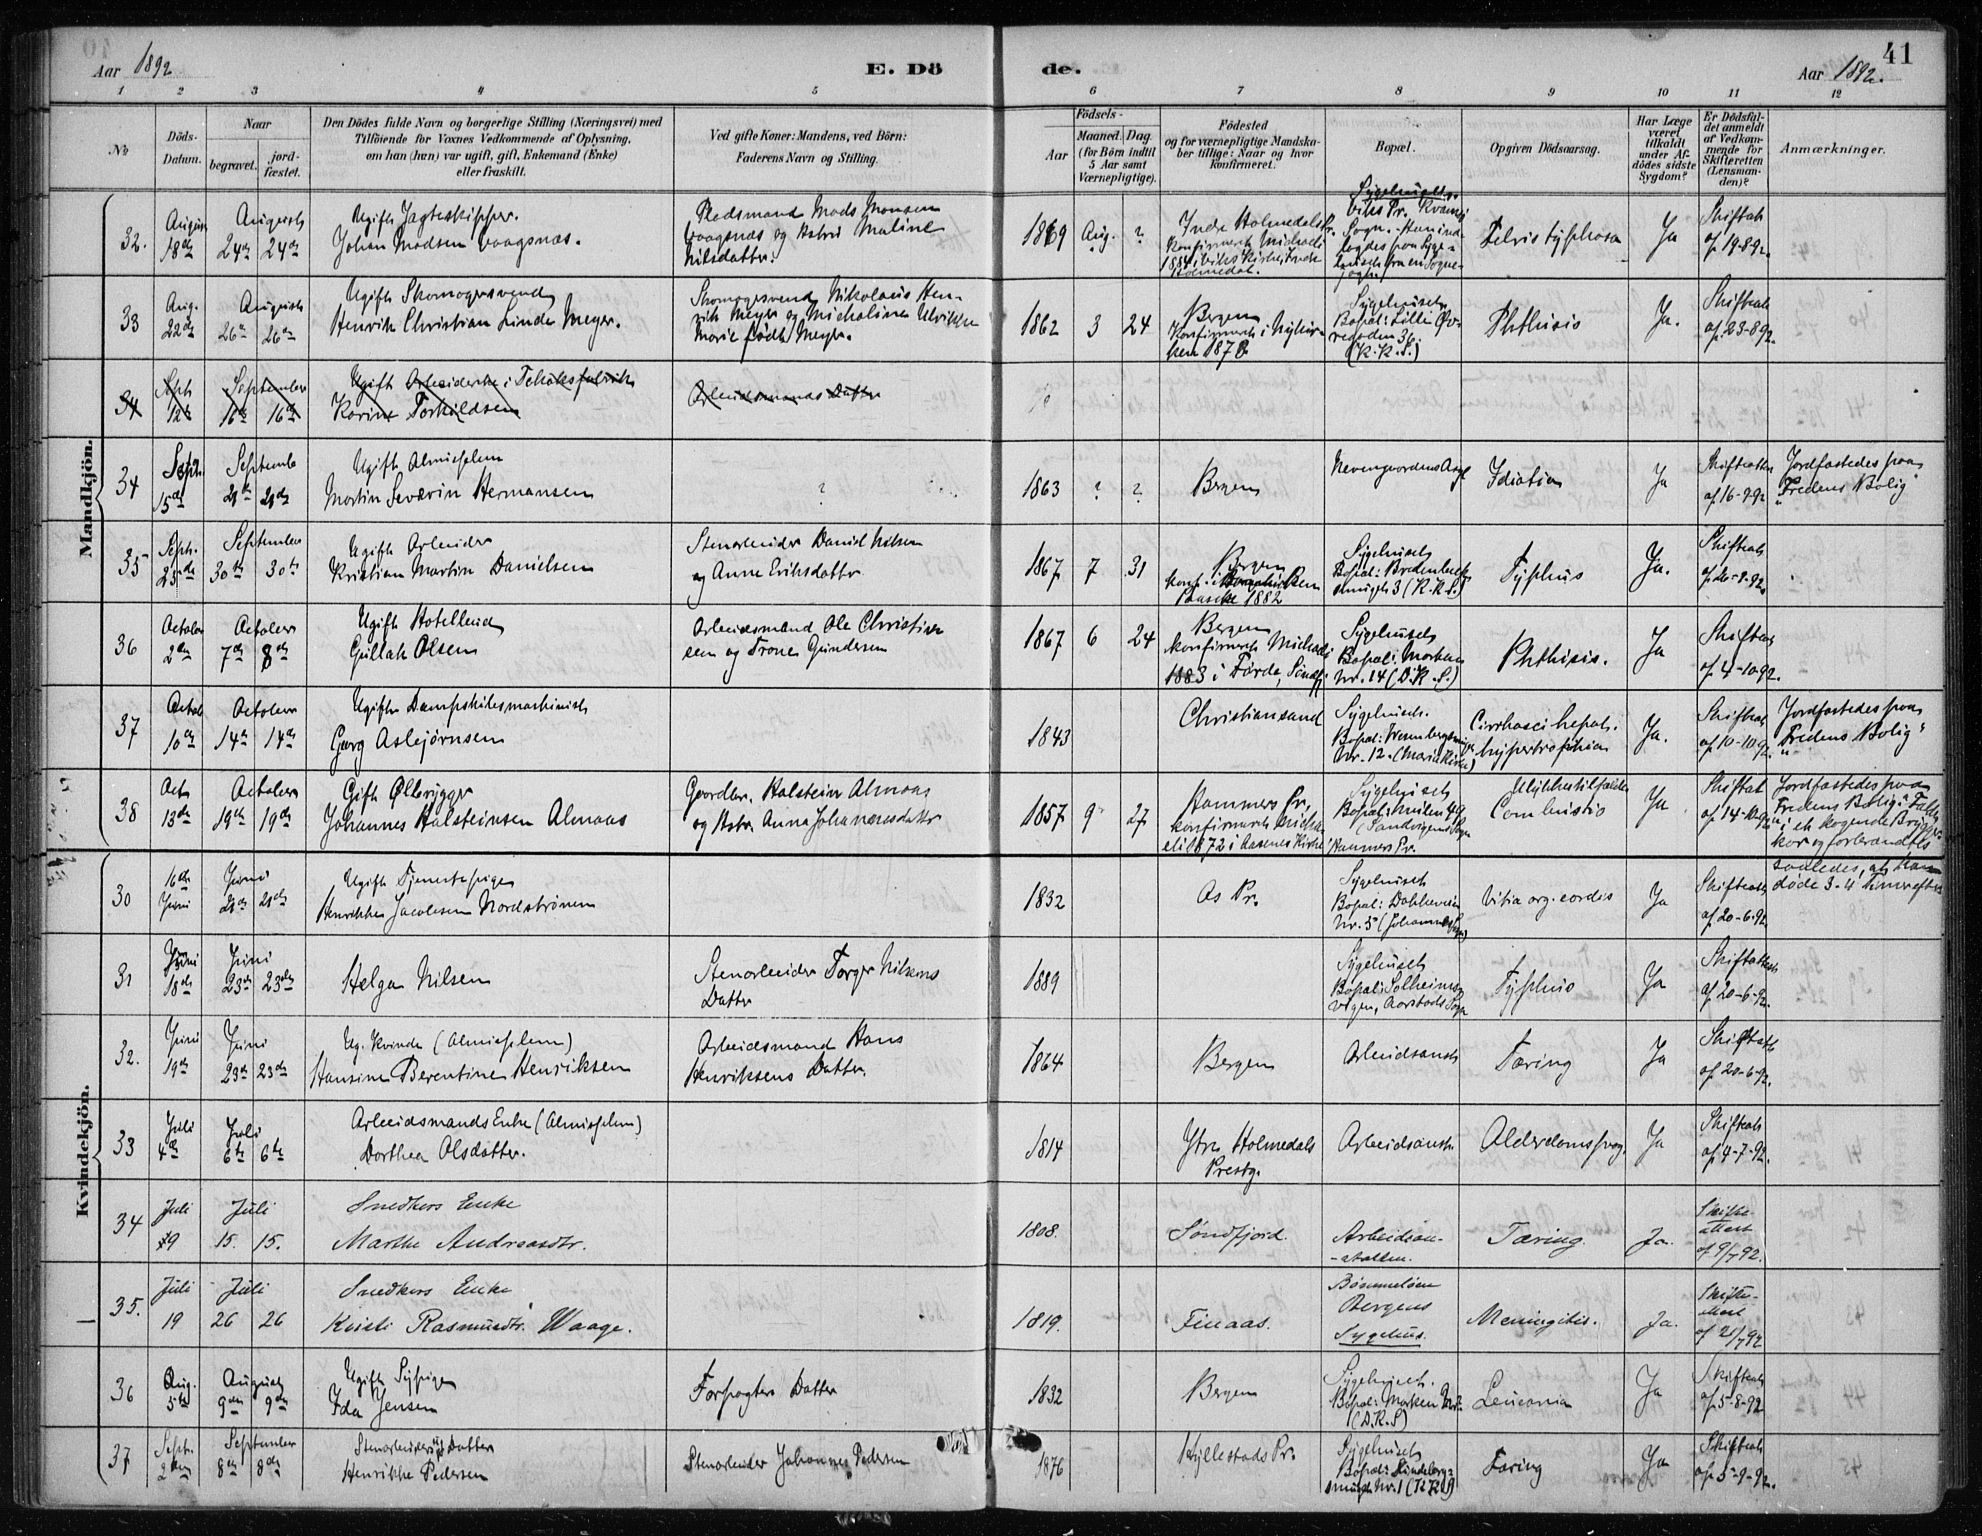 41
Aar 1892
E. Dö
de.
Aar 1892.
1 2 3 4 5 6 7 8 9 10 11 12
No
Döds-Datum.
Naar
begravet. jordfæstet.
Den Dödes fulde Navn og borgerlige Stilling (Næringsvei) med
Tilföiende for Voxnes Vedkommende af Oplysning,
om han (hun) var ugift, gift, Enkemand (Enke)
eller fraskilt.
Ved gifte Koner: Mandens, ved Börn:
Faderens Navn og Stilling.
Födsels-
Aar
Maaned. Dag.
(for Börn indtil
5 Aar samt
Værnepligtige).
Födested
og for værnepligtige Mandskaber tillige: Naar og hvor
konfirmeret.
Bopæl.
Opgiven Dödsaarsag.
Har Læge
været
tilkaldt
under Afdödes sidste
Sygdom?
Er Dödsfaldet anmeldt
af Vedkommende for
Skifteretten
(Lensmanden)?
Anmærkninger.
Mandkjön.
32.
August 18de
August
24de 24de
Ugift Jagteskipper.
Johan Madsen Vaagsnæs.
Pladsmand Mads Monsen
Vaagsnæs og Hstru Maline
Nilsdatter.
1869 Aug. ?
Indre Holmedals Pr.
Konfirmeret Michaeli
1884 i Viks Kirke, Indre
Holmedal.
Sygehuset
Viks Pr.
Sogn. Han indlagdes paa Sygehuset fra en
Febris typhosa
Ja
Skifteatt.
af 19-8-92.
33
Aug. 22de
August
26de 26de
Ugift Skomagersvend
Henrik Christian Linde Meyer.
Skomagersvend Nikolaus Henrik Meyer og Micheline Ulrikke
Marie född Meyer.
1862 3 24
Bergen
Konfirmeret i Nykirken 1878
Sygehuset
Bopæl: Lille Øvregaden 36.
(K. K. S.)
Phthisis
Ja.
Skifteatt.
af 23-8-92.
34
Sept. 12te
September
16de 16de
Ugift Arbeiderske i Tobaksfabrik
Karine Torkildsen
Arbeidsmands Datter
34
Sept. 15de
September
21de 21de
Ugift Almisselem
Martin Severin Hermansen
?
1863 ? ?
Bergen
Nevengaardens Asyl
Idiotia
Ja
Skifteatten
af 16-9-92
Jordfæstedes paa
"Fredens Bolig"
35
Sept. 25de
September
30te 30te
Ugift Arbeider
Kristian Martin Danielsen
Stenarbeider Daniel Nilsen
og Anne Eriksdatter
1867 7 31
Bergen
konf. i
Paaske 1882
Sygehuset
Bopæl: Bredenbecks
smuget 3 (K. K. S.)
Typhus
Ja.
Skifteatt.
af 20-9-92.
36
October 2den
October
7de 8de
Ugift Hotelbud
Gullak Olsen
Arbeidsmand Ole Christiansen og Trone Gundersen
1867 6 24
Bergen
konfirmeret Michaeli
1883 i Førde, Søndfj.
Sygehuset
Bopæl: Marken
Nr. 14 (D. K. S.)
Phthisis.
Ja
Skifteatt.
af 4-10-92.
37
October 10de
October
14de 14de
Ugift Dampskibsmaskinist
Georg Asbjørnsen
1843
Christiansand
Sygehuset.
Bopæl:
Nr. 12. (Mariakirke)
Cirrhosis hepat.
hypertrophia
Ja.
Skifteatt.
af 10-10-92.
Jordfæstedes paa
"Fredens Bolig"
38
Oct. 13de
October
19de 19de
Gift Ølbrygger
Johannes Halsteinsen Almaas
Gaardbr. Halstein Almaas
og Hstru Anna Johannesdatter
1857 9 27
Hammers Pr.
konfirmeret Michaeli 1872 i Aasenes Kirke
Sygehuset
Bopæl: Mulen 49
(Sandvigens Sogn
Hammers Pr.
Ulykkestilfælde
Combustio
Ja
Skifteatt.
af 14-10-92
Jordfæstedes paa
"Fredens Bolig". Faldt
i et kogende Bryggerkar og forbrændtes
saaledes, at han
døde 3-4 Timer efter
Kvindekjön.
30
16de Juni
Juni
21de 21de
Ugift Tjenestepige
Henrikke Jacobsen Nordstrønen
1832
Os Pr.
Sygehuset
Bopæl: Dokkeveien
Nr. 5 (Johannes Sogn)
Vitia org. cordis
Ja
Skifteatt.
af 20-6-92.
31
Juni 18de
Juni
23de 23de
Helga Nilsen
Stenarbeider Torger Nilsens
Datter
1889
Sygehuset
Bopæl: Solheimsvigen, Aarstads Sogn
Typhus
Ja
Skifteattest
af 20-6-92.
32.
Juni 19de
Juni
23de 23de
Ug. Kvinde (Almisselem)
Hansine Berentine Henriksen
Arbeidsmand Hans
Henriksens Datter.
1864
Bergen
Arbeidsanst.
Tæring
Ja
Skifteatt.
af 20-6-92.
33
Juli 4de
Juli
6te 6te
Arbeidsmands Enke (Almisselem)
Dorthea Olsdatter.
1814
Ytre Holmedals
Prestg.
Arbeidsanst.
Alderdomssvag.
Ja
Skifteatt.
af 4-7-92.
34
Juli 9
Juli
15. 15.
Snedkers Enke
Marthe Andreasdtr.
1808.
Søndfjord.
Arbeidsan-
-stalten.
Tæring.
Ja.
Skifte-
attest
af 9/7 92.
35.
Juli 19
Juli
26 26
Snedkers Enke
Kristi Rasmusdtr. Waage.
1819.
Finaas.
Bømmeløen
Bergens
Sygehus.
Meningitis.
Ja.
Skifte-
attest
af 21/7 92
36
Aug. 5te
August
9de 9de
Ugift Sypige
Ida Jensen
Forpagters Datter
1832
Bergen
Sygehuset.
Bopæl: Marken
(D. K. S)
Leucomia
Ja
Skifteatt.
af 5-8-92
37
Sept. 2den
September
8de 8de
Stenarbeiders Datter
Henrikke Pedersen
Stenarbeider Johannes Pedersen
1876
Hyllestads Pr.
Sygehuset
Bopæl:
smuget Nr. 1
Tæring
Ja
Skifteatt.
af 5-9-92.